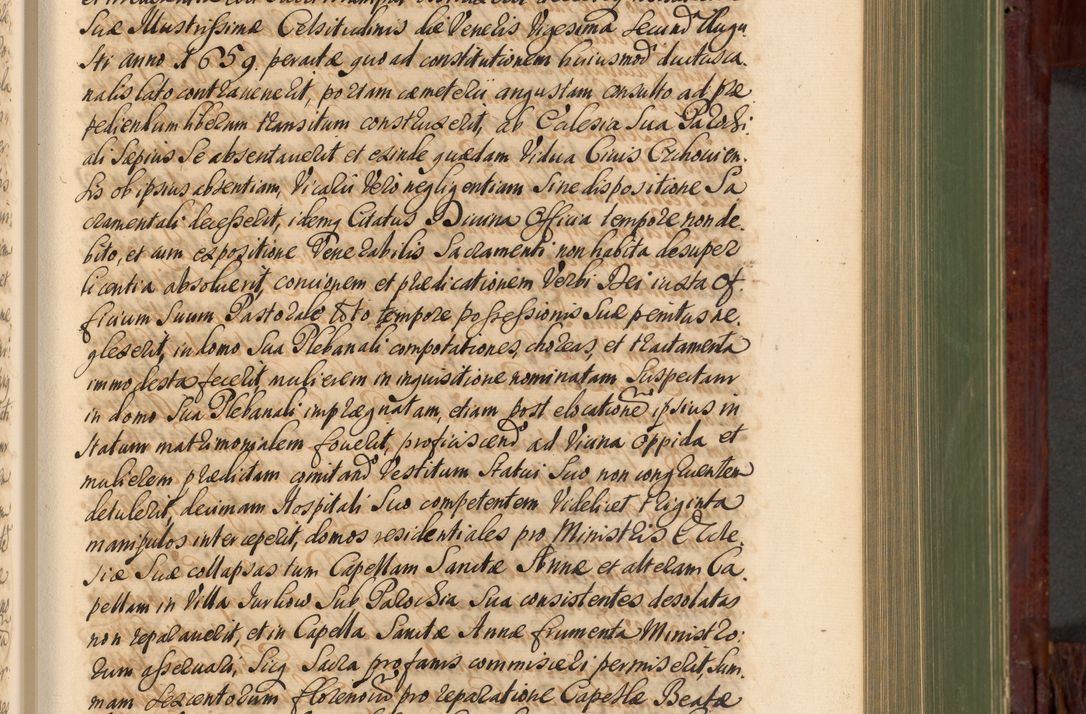 Suæ Illustrissimæ Celsitudinis die Veneris Vigesima Secund Augu
sti anno 1659. peractæ quoad constitutionem huiusmod ductus ca
nalis lato contravenerit, portam cæmeterii angustam consulto ad præ
pediendum liberum transitum construxerit, ab Ecclesia Sua Parochi
ali sæpius se absentaverit et exinde quædam Vidua Civis Czchovien.
sis ob ipsius absentiam, Vicarii Vero negligentiam Sine dispositione Sa
cramentali decesserit, idemq Citatus Divina Officia tempore non de
bito, et cum expositione Venerabilis Sacramenti non habita desuper
licentia absolverit, concionem et prædicationem Verbi Dei iuxta Of
ficium Suum Pastorale toto tempore possessionis Suæ penitus ne.
glexerit, in domo Sua Plebanali compotationes, choreas, et tractamenta
immodesta fecerit, mulierem in inquisitione nominatam Suspectam
in domo Sua Plebanali imprægnatam, etiam post elocationem ipsius in
statum matrimonialem foverit, proficiscend ad Vicina oppida et
mulierem prædictam comitand Vestitum Statui Suo non congruentem
detulerit, decimam Hospitali Suo competentem Videlicet triginta
manipulos interceperit, domos residentiales pro Ministris Eccle.
siæ Suæ collapsas tum Capellam Sanctæ Annæ et alteram Ca.
pellam in Villa Jurkow Sub Parochia Sua consistentes desolatas
non reparaverit, et in Capella Sanctæ Annæ frumenta Ministro:
rum asservari, Sicq Sacra profanis commisceri permiserit, Sum
mam Sexcentorum florenorum pro reparatione Capellæ Beatæ